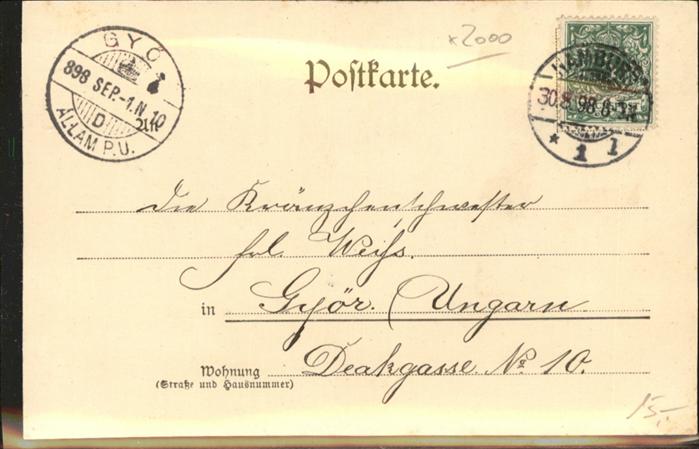 x2000
Postkarte.
GYŐ
898 SEP.-1.N.10
D
ÁLLAM P.U.
HAMBURG
30.8.98.8-9N
* 1 l
die Kränzchenschwester
frl. Weiss.
in Győr. (Ungarn
Wohnung Deakgasse № 10.
(Straße und Hausnummer)
15,-